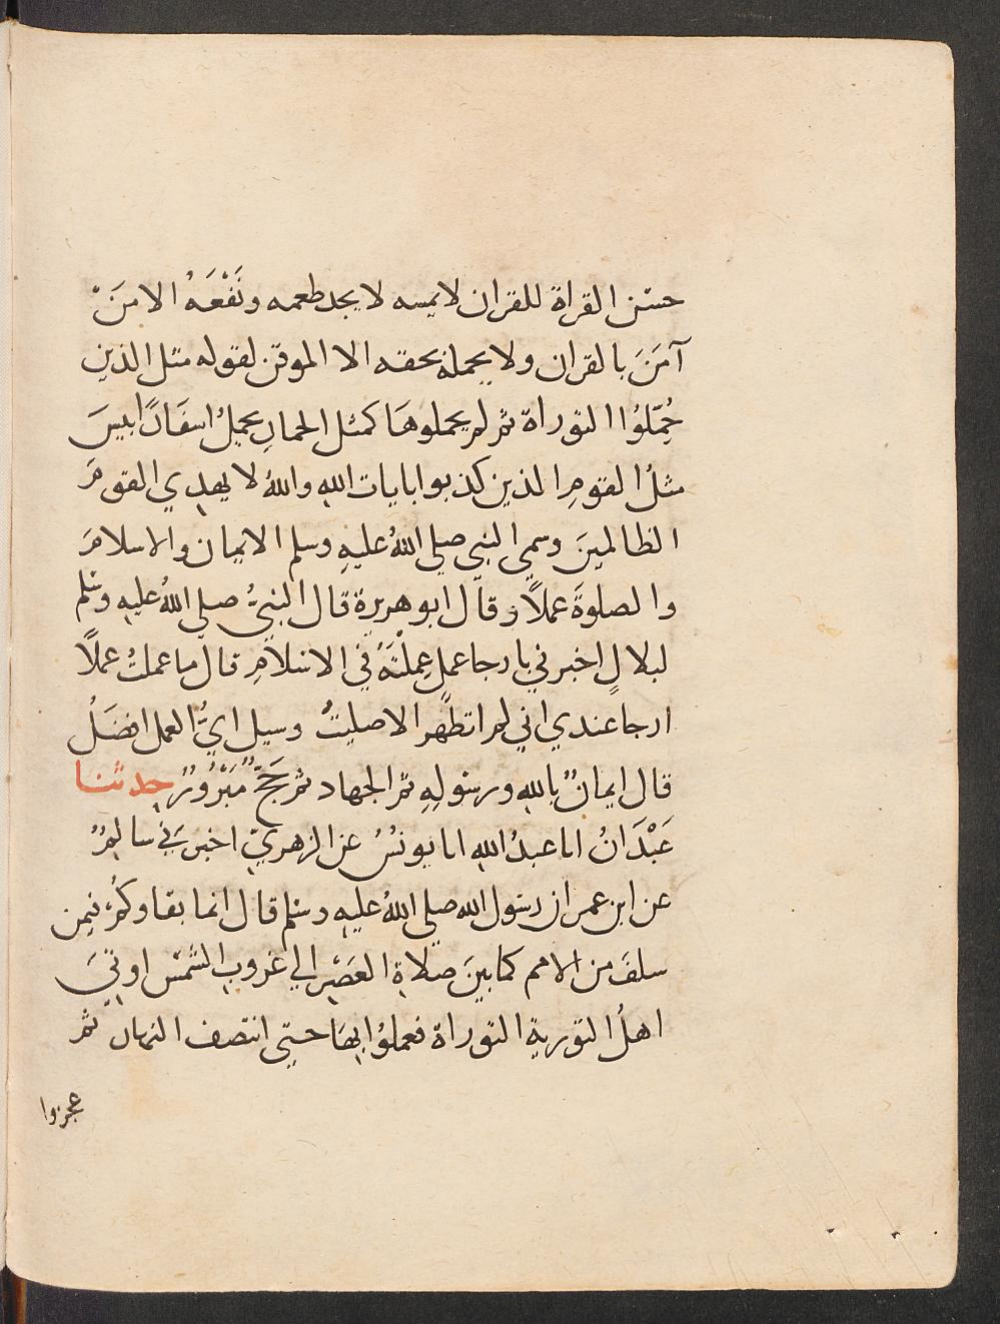 حسن القراة للقران لا يمسه لا يجد طعمه ونَفْعَهُ الا مَنْ
آمَنَ بالقران ولا يحمله بحقه الا الموقن لقوله مثل الذين
حُمّلُوا التوراة ثم لم يحملوهَا كمثل الحمارِ يحملُ اسفَارًا بيسَ
مثلُ القومِ الذين كذبوا بايات اللهِ واللهُ لا يهدِي القومَ
الظالمينَ وسمي النبي صلي اللهُ عليهِ وسلم الايمان والاسلامَ
والصلوةَ عملًا وقال ابو هريرة قال النبيُّ صلي اللهُ عليهِ وسلم
لبلالٍ اخبرني بارجا عمل عِملْتَهُ في الاسلامِ قال ما عملتُ عملًا
ارجا عندي اني لم اتطهر الا صليتُ وسيل ايُّ العمل افضَلُ
قال ايمانٌ باللهِ ورسولِهِ ثم الجهاد ثم حَجٌّ مَبْرُورٌ حدثنا
عَبْدَانُ انا عبدُ اللهِ انا يونُسُ عن الزهريِّ اخبرَني سالِمٌ
عن ابن عمر ان رسول الله صلي اللهُ عليهِ وسلم قال انما بقاوكُم فيمن
سلفَ من الامم كما بينَ صلاةِ العَصْرِ الي غروبِ الشمس اوتيَ
اهلُ التورية التوراة فعملُوا بِهَا حتي انتصف النهار ثم
عجزوا